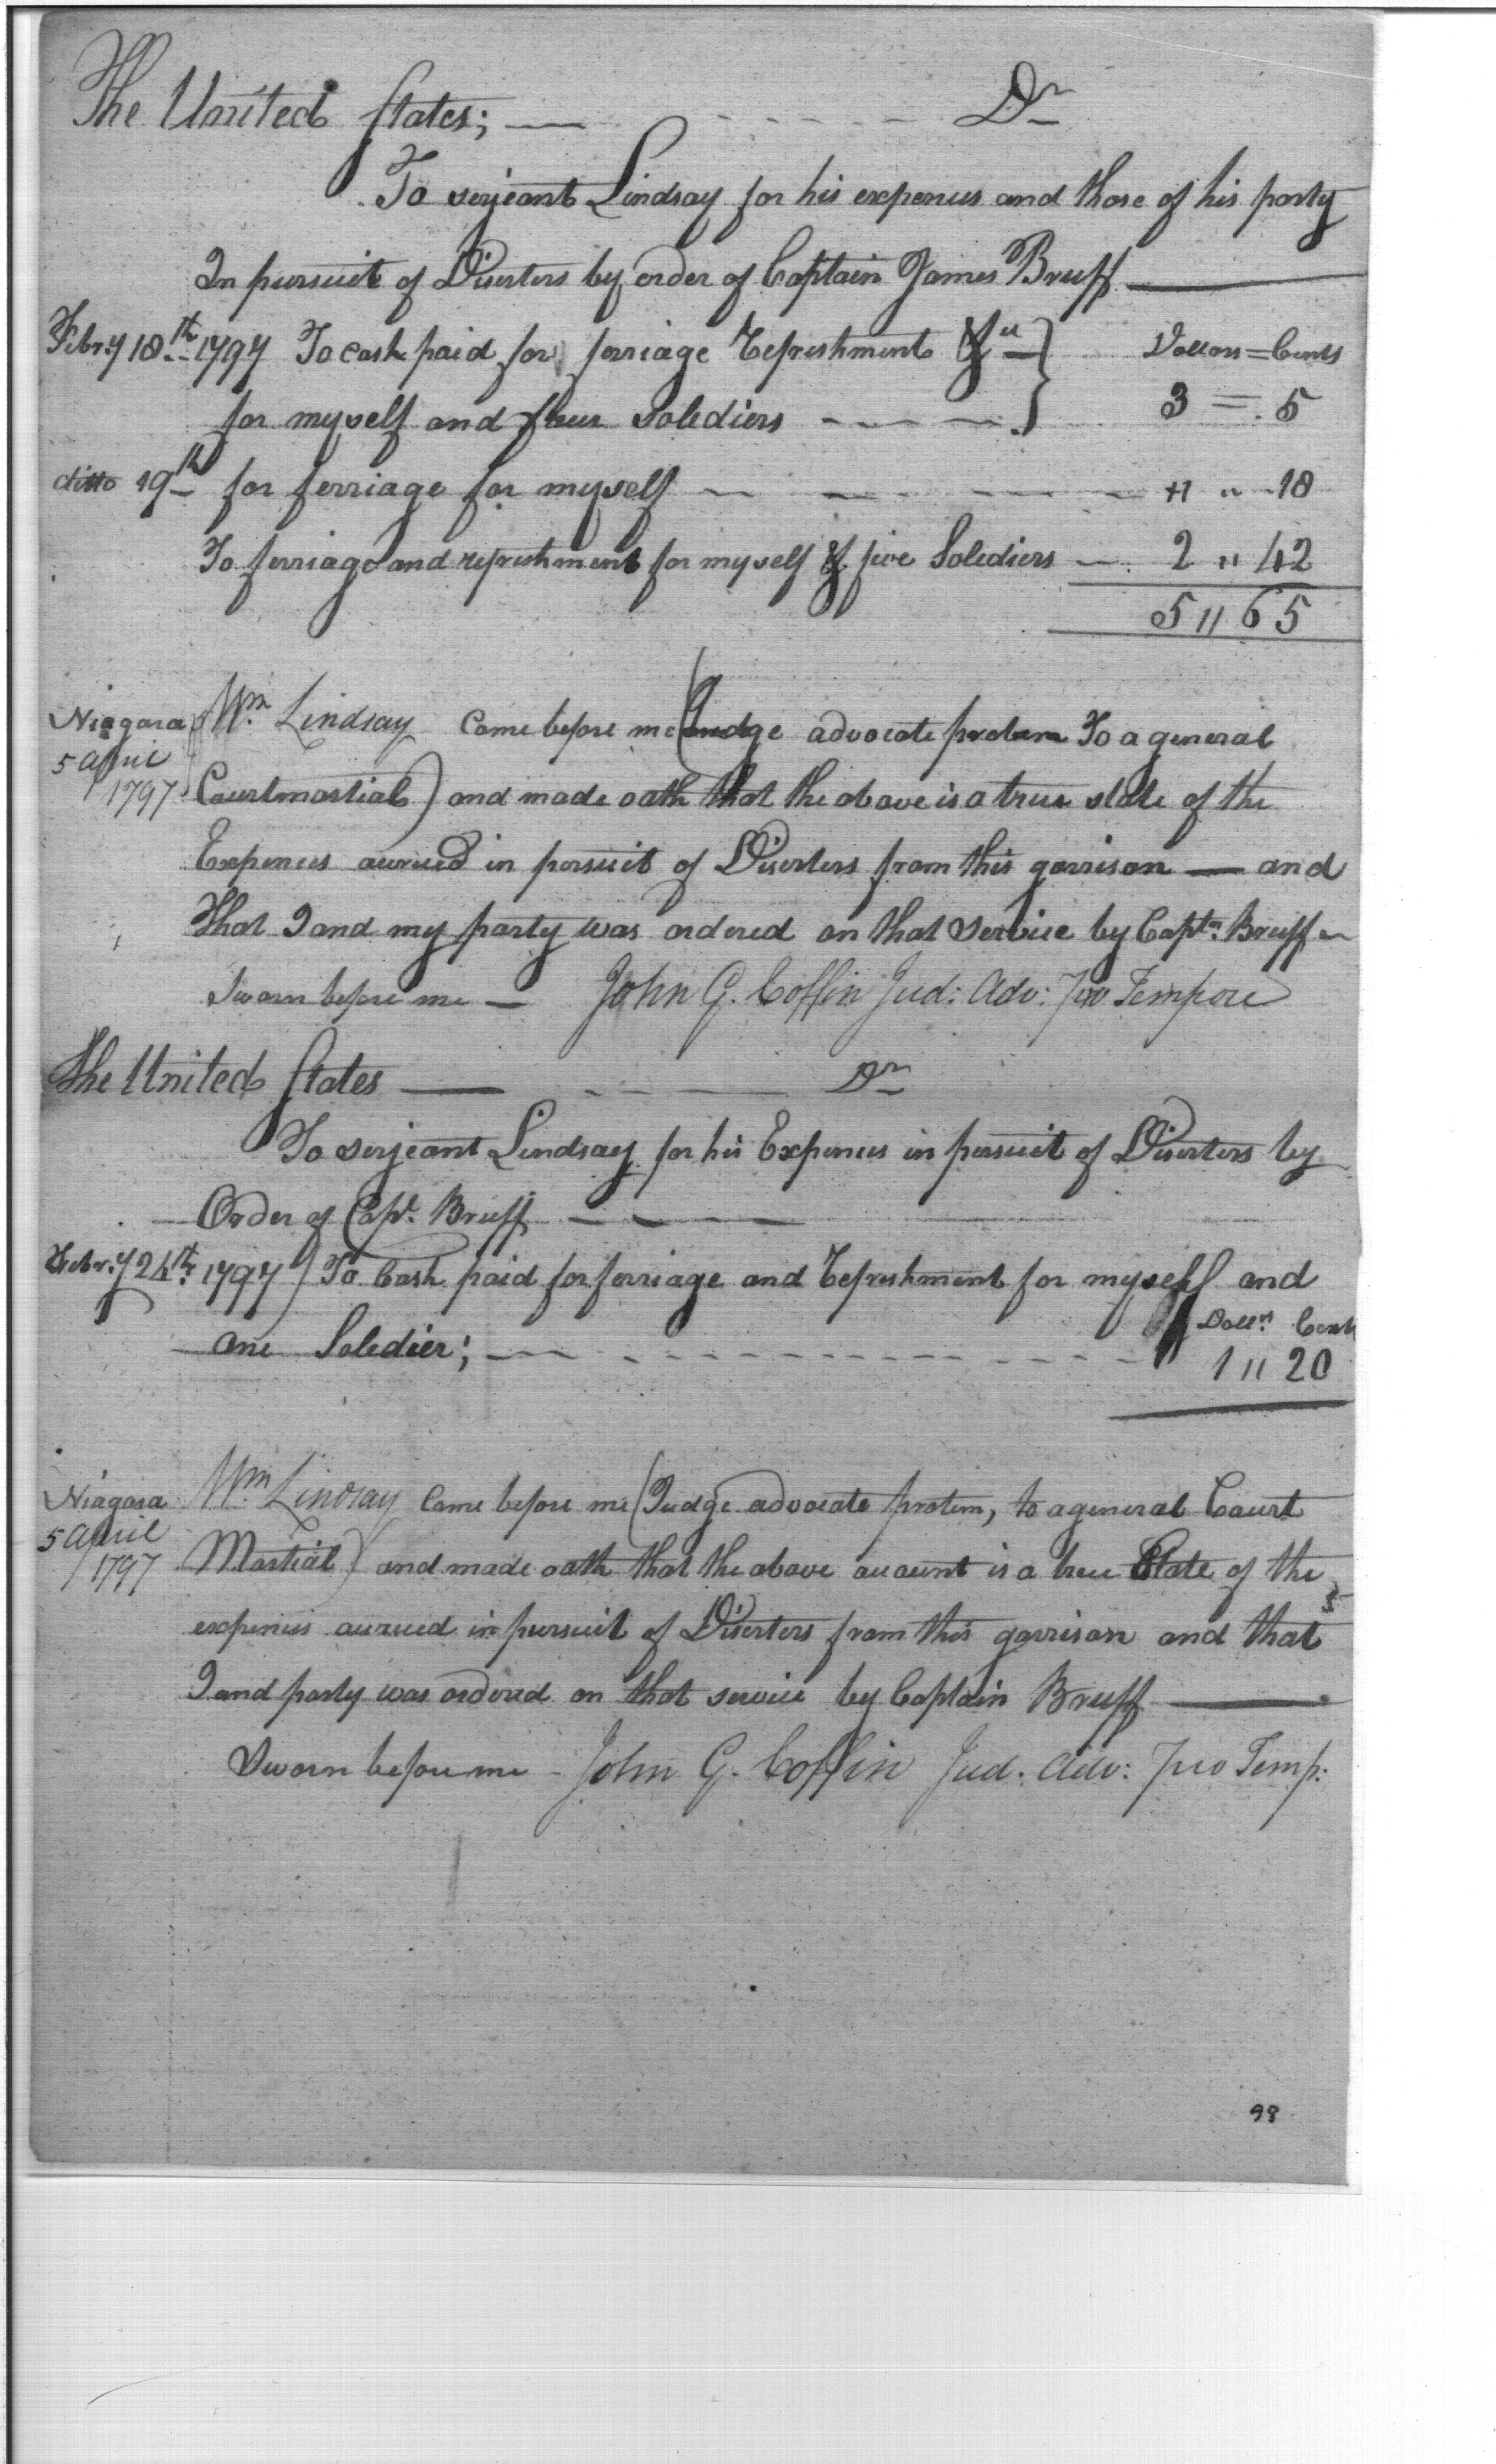 The United States; — - - - - - - Dr
To serjeant Lindsay for his expences and those of his party
In pursuit of Diserters by order of Captain James Bruff —
Febry 18th 1797 To cash paid for ferriage Refreshment &c } Dollars = Cents
for myself and four solediers - - - - } 3 = 5
ditto 19th for ferriage for myself — — — — — " " 18
To ferriage and refreshment for myself & five Solediers — 2 " 42
5 " 65
Niagara 5 April 1797 } Wm Lindsay Came before me (Judge advocate protem To a general
Courtmartial) and made oath that the above is a true state of the
Expences accrued in persuit of Diserters from this garrison — and
That I and my party was ordered on that Service by Captn. Bruff —
Sworn before me — John G. Coffin Jud: Adv: Pro Tempore
The United States — - - — Dr
To serjeant Lindsay for his Expences in persuit of Diserters by
Order of Capt. Bruff — — — —
Febry 24th. 1797) To Cash paid for ferriage and Refreshment for myself and
Dolls. Cents
one Soledier; — - - - - - - - - - 1 " 20
Niagara 5 April 1797 Wm. Lindsay Came before me (Judge advocate protem, to a general Court
Martial) and made oath that the above account is a true State of the
expences accrued in pursuit of Diserters from this garrison and that
I and party was ordered on that service by Captain Bruff —
Sworn before me - John G. Coffin Jud. Adv: Pro Temp:
98